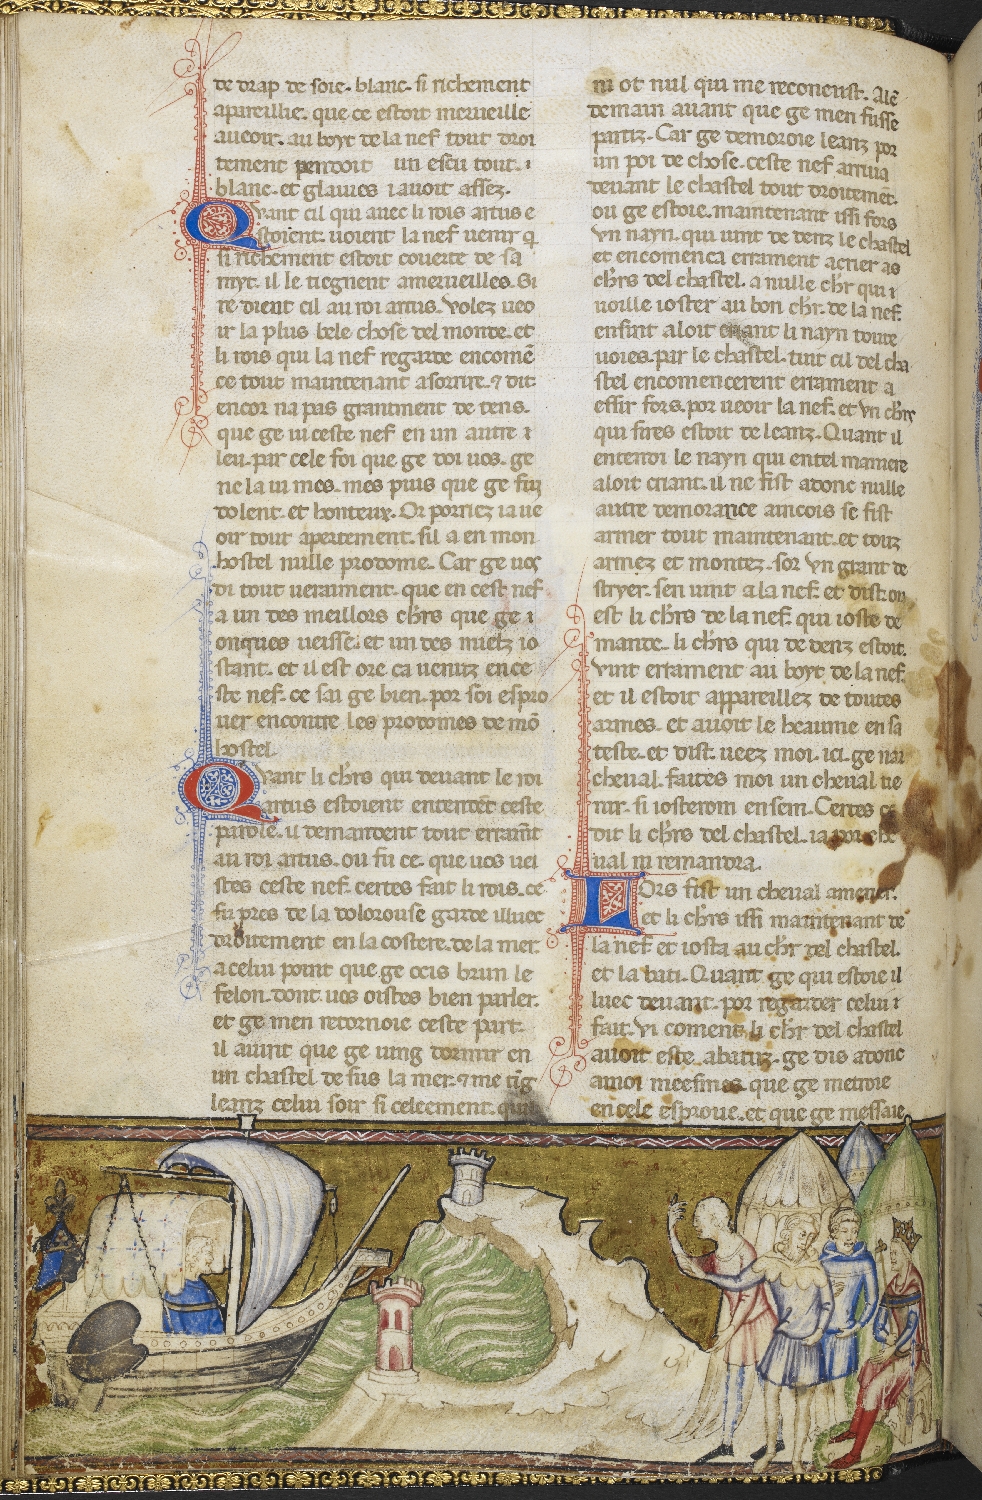 de drap de soie. blanc. si richement
apareillie. que ce estoit merueille
aueoir. au boyt de la nef tout droi
tement pendoit un escu tout. i
blanc. et glaiues i auoit assez.
Quant cil qui auec li rois artus e
stoient. uoient la nef uenir q̃
si richement estoit couerte de sa
myt. il le tiegnent amerueilles. Si
re dient cil au roi artus. volez ueo
ir la plus bele chose del monde. et
li rois qui la nef regarde encomē
ce tout maintenant asorrire. ⁊ dit
encor na pas grantment de tens.
que ge ui ceste nef en un autre i
leu. par cele foi que ge doi uos. ge
ne la ui mes. mes puis que ge fui
dolent. et honteux. Or porriez ia ue
oir tout apertement. sil a en mon
hostel nulle prodome. Car ge uos
di tout ueraiment. que en cest nef
a un des meillors chrs que ge i
onques ueisse. et un des mielz io
stant. et il est ore ca uenuz en ce
ste nef. ce sai ge bien. por soi espro
uer encontre les prodomes de mō
hostel.
Quant li chrs qui deuant le roi
artus estoient entendēt ceste
parole. il demandent tout erramēt
au roi artus. ou fu ce. que uos uei
stes ceste nef. certes fait li rois. ce
fu pres de la dolorouse garde illuec
droitement en la costere. de la mer.
a celui point que ge ocis brun le
felon. dont uos oistes bien parler.
et ge men retornoie ceste part.
il auint que ge uing dormir en
un chastel de sus la mer. ⁊ me tīg
leanz celui soir si celeement. quil
ni ot nul qui me reconeust. Alē
demain auant que ge men fusse
partiz. Car ge demoroie leanz por
un poi de chose. ceste nef arriua
deuant le chastel tout droitemēt.
ou ge estoie. maintenant issi fors
vn nayn. qui uint de denz le chastel
et encomenca errament acrier as
chrs del chastel. a nulle chr qui i
uoille ioster au bon chr. de la nef.
ensint aloit criant li nayn toute
uoies. par le chastel. tant cil del cha
stel encomencerent errament a
essir fors. por ueoir la nef. et vn chrs
qui sires estoit de leanz. Quant il
entendi le nayn qui entel maniere
aloit criant. il ne fist adonc nulle
autre demorance aincois se fist
armer tout maintenant. et touz
armez et montez. sor vn grant de
stryer. sen uint a la nef. et dist. ou
est li chrs de la nef. qui ioste de
mande. li chrs qui de denz estoit.
vint errament au boyt de la nef.
et il estoit appareillez de toutes
armes. et auoit le heaume en sa
teste. et dist. ueez moi. ici. ge nai
cheual. faites moi un cheual ue
nir. si iosterom ensem. Certes ce
dit li chrs del chastel. ia por che
ual ni remandra.
Lors fist un cheual amener.
et li chrs issi maintenant de
la nef et iosta au chr del chastel.
et la bati. Quant ge qui estoie il
luec deuant. por regarder celui i
fait. vi coment li chr del chastel
auoit este. abatuz. ge dis adonc
amoi meesmes que ge metroie
en cele esproue. et que ge messaie